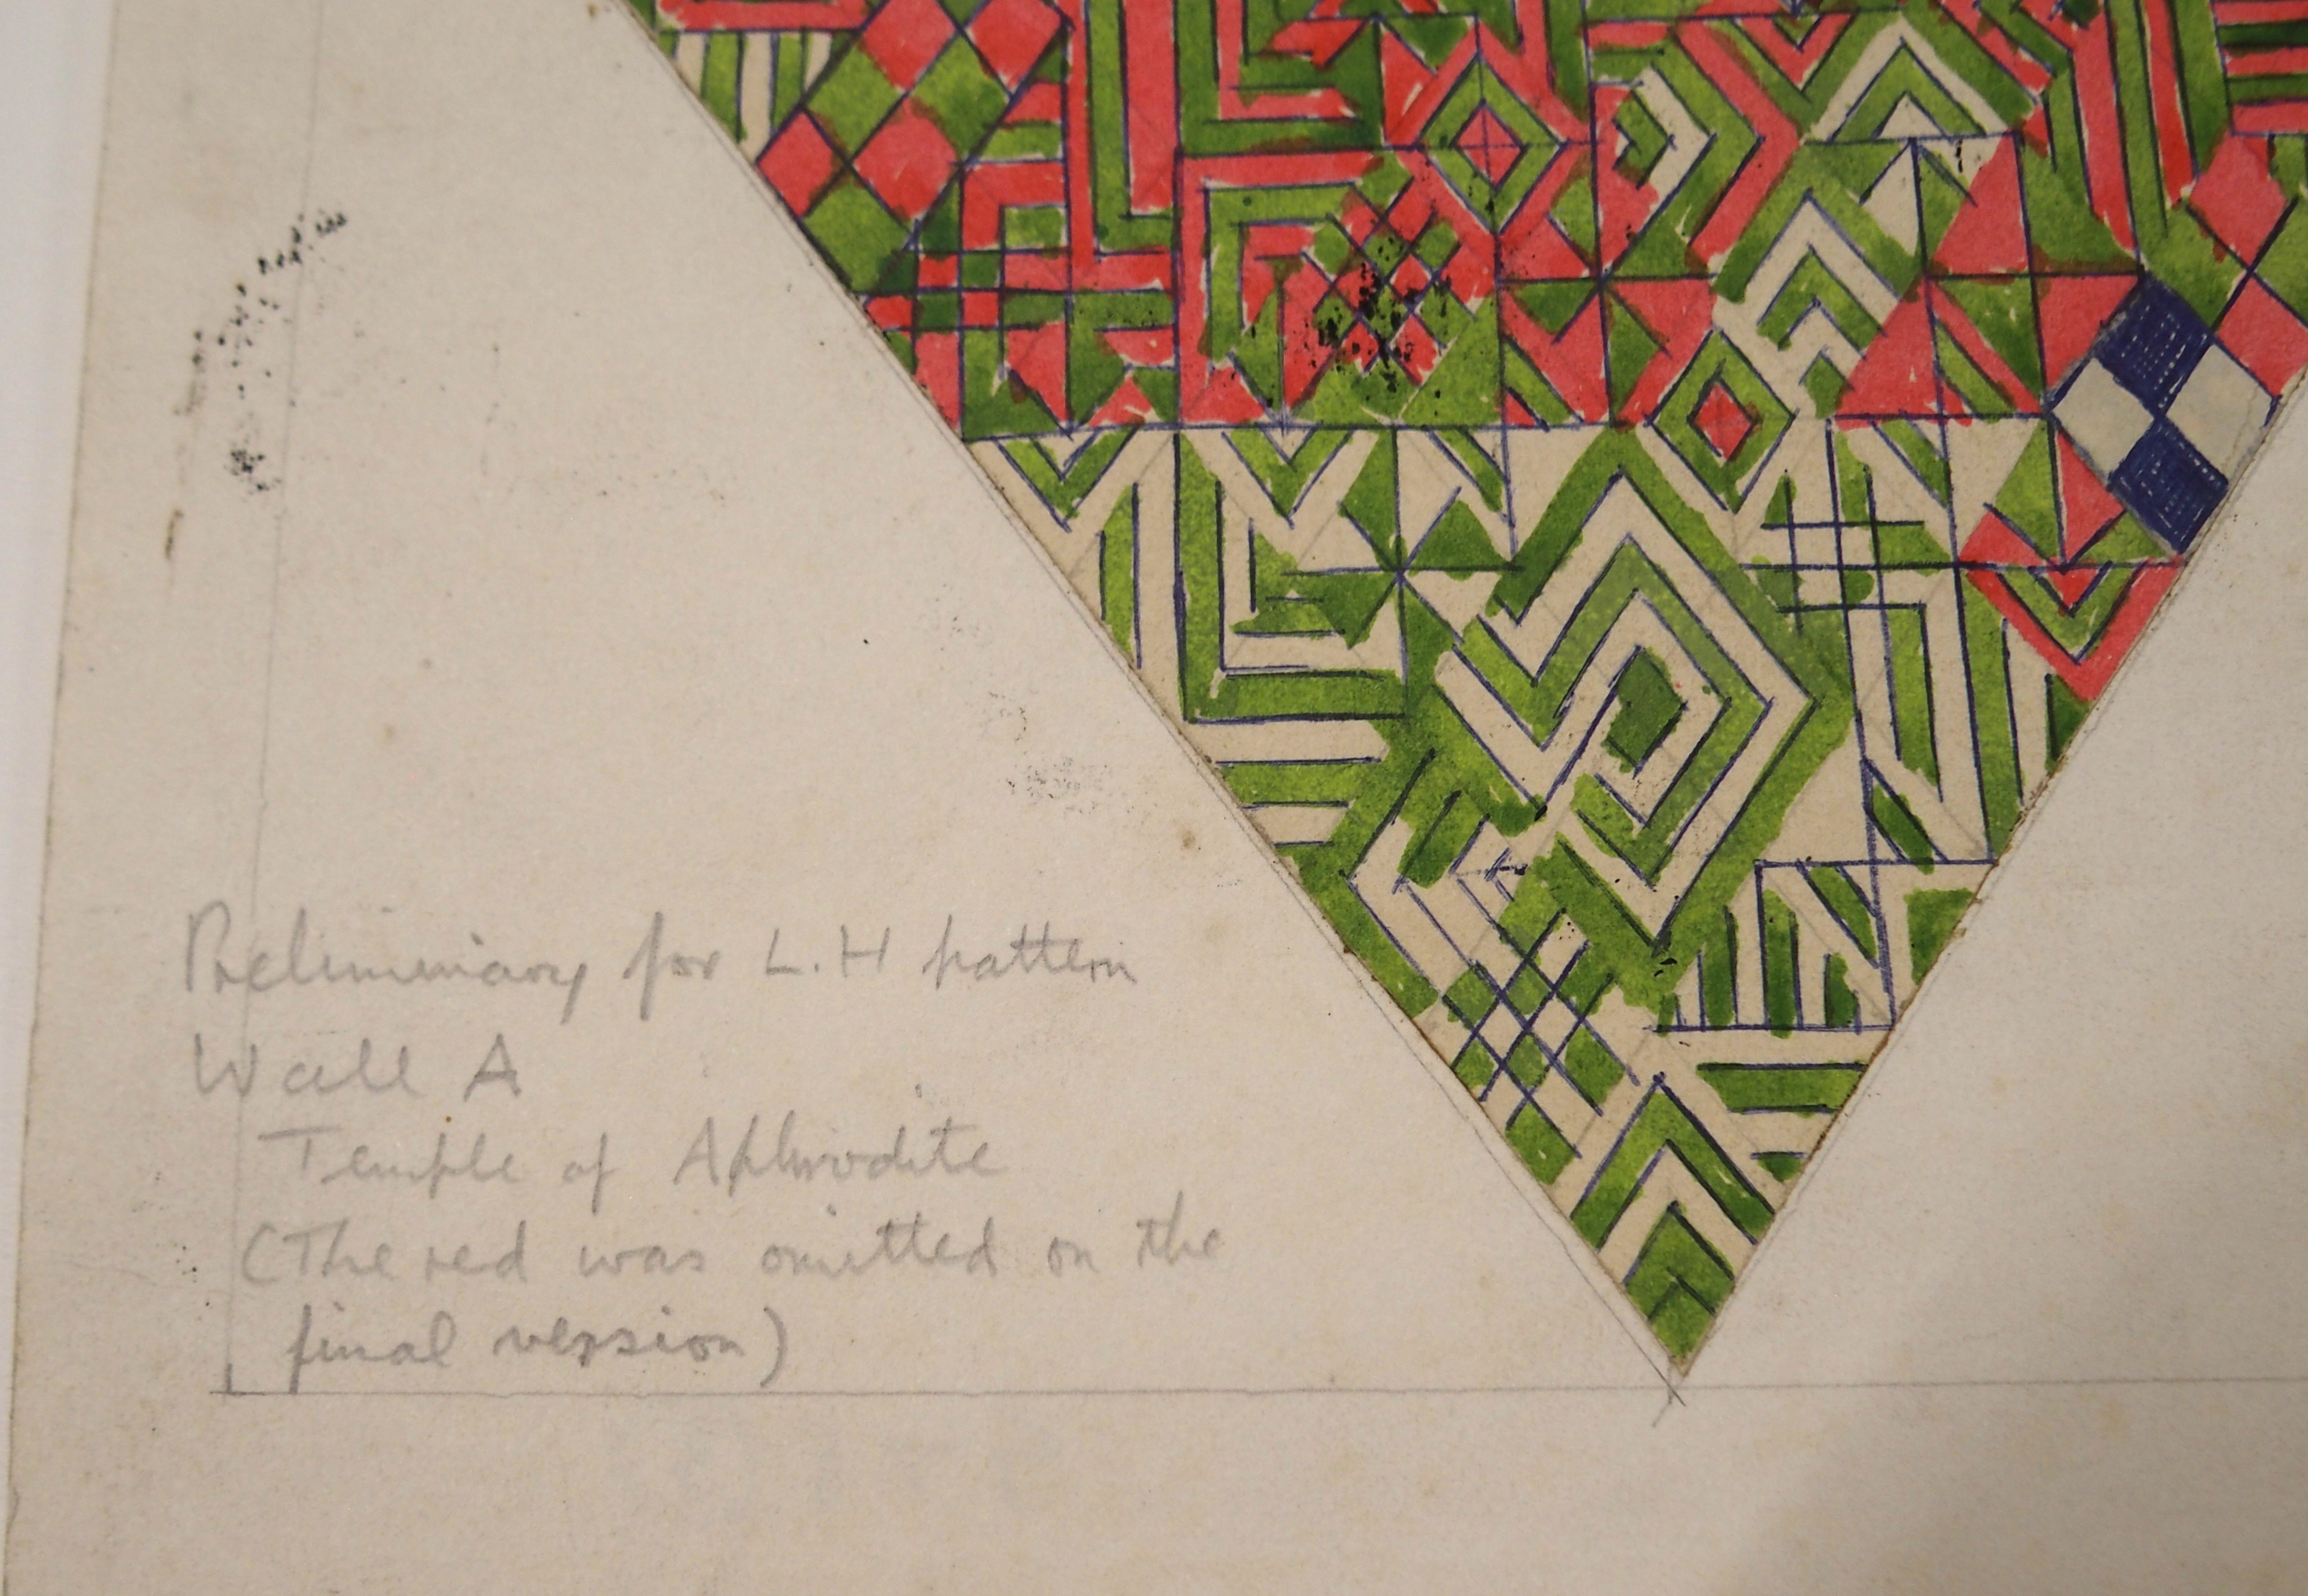 Preliminary for L.H pattern
Wall A
Temple of Aphrodite
(The red was omitted on the
final version)